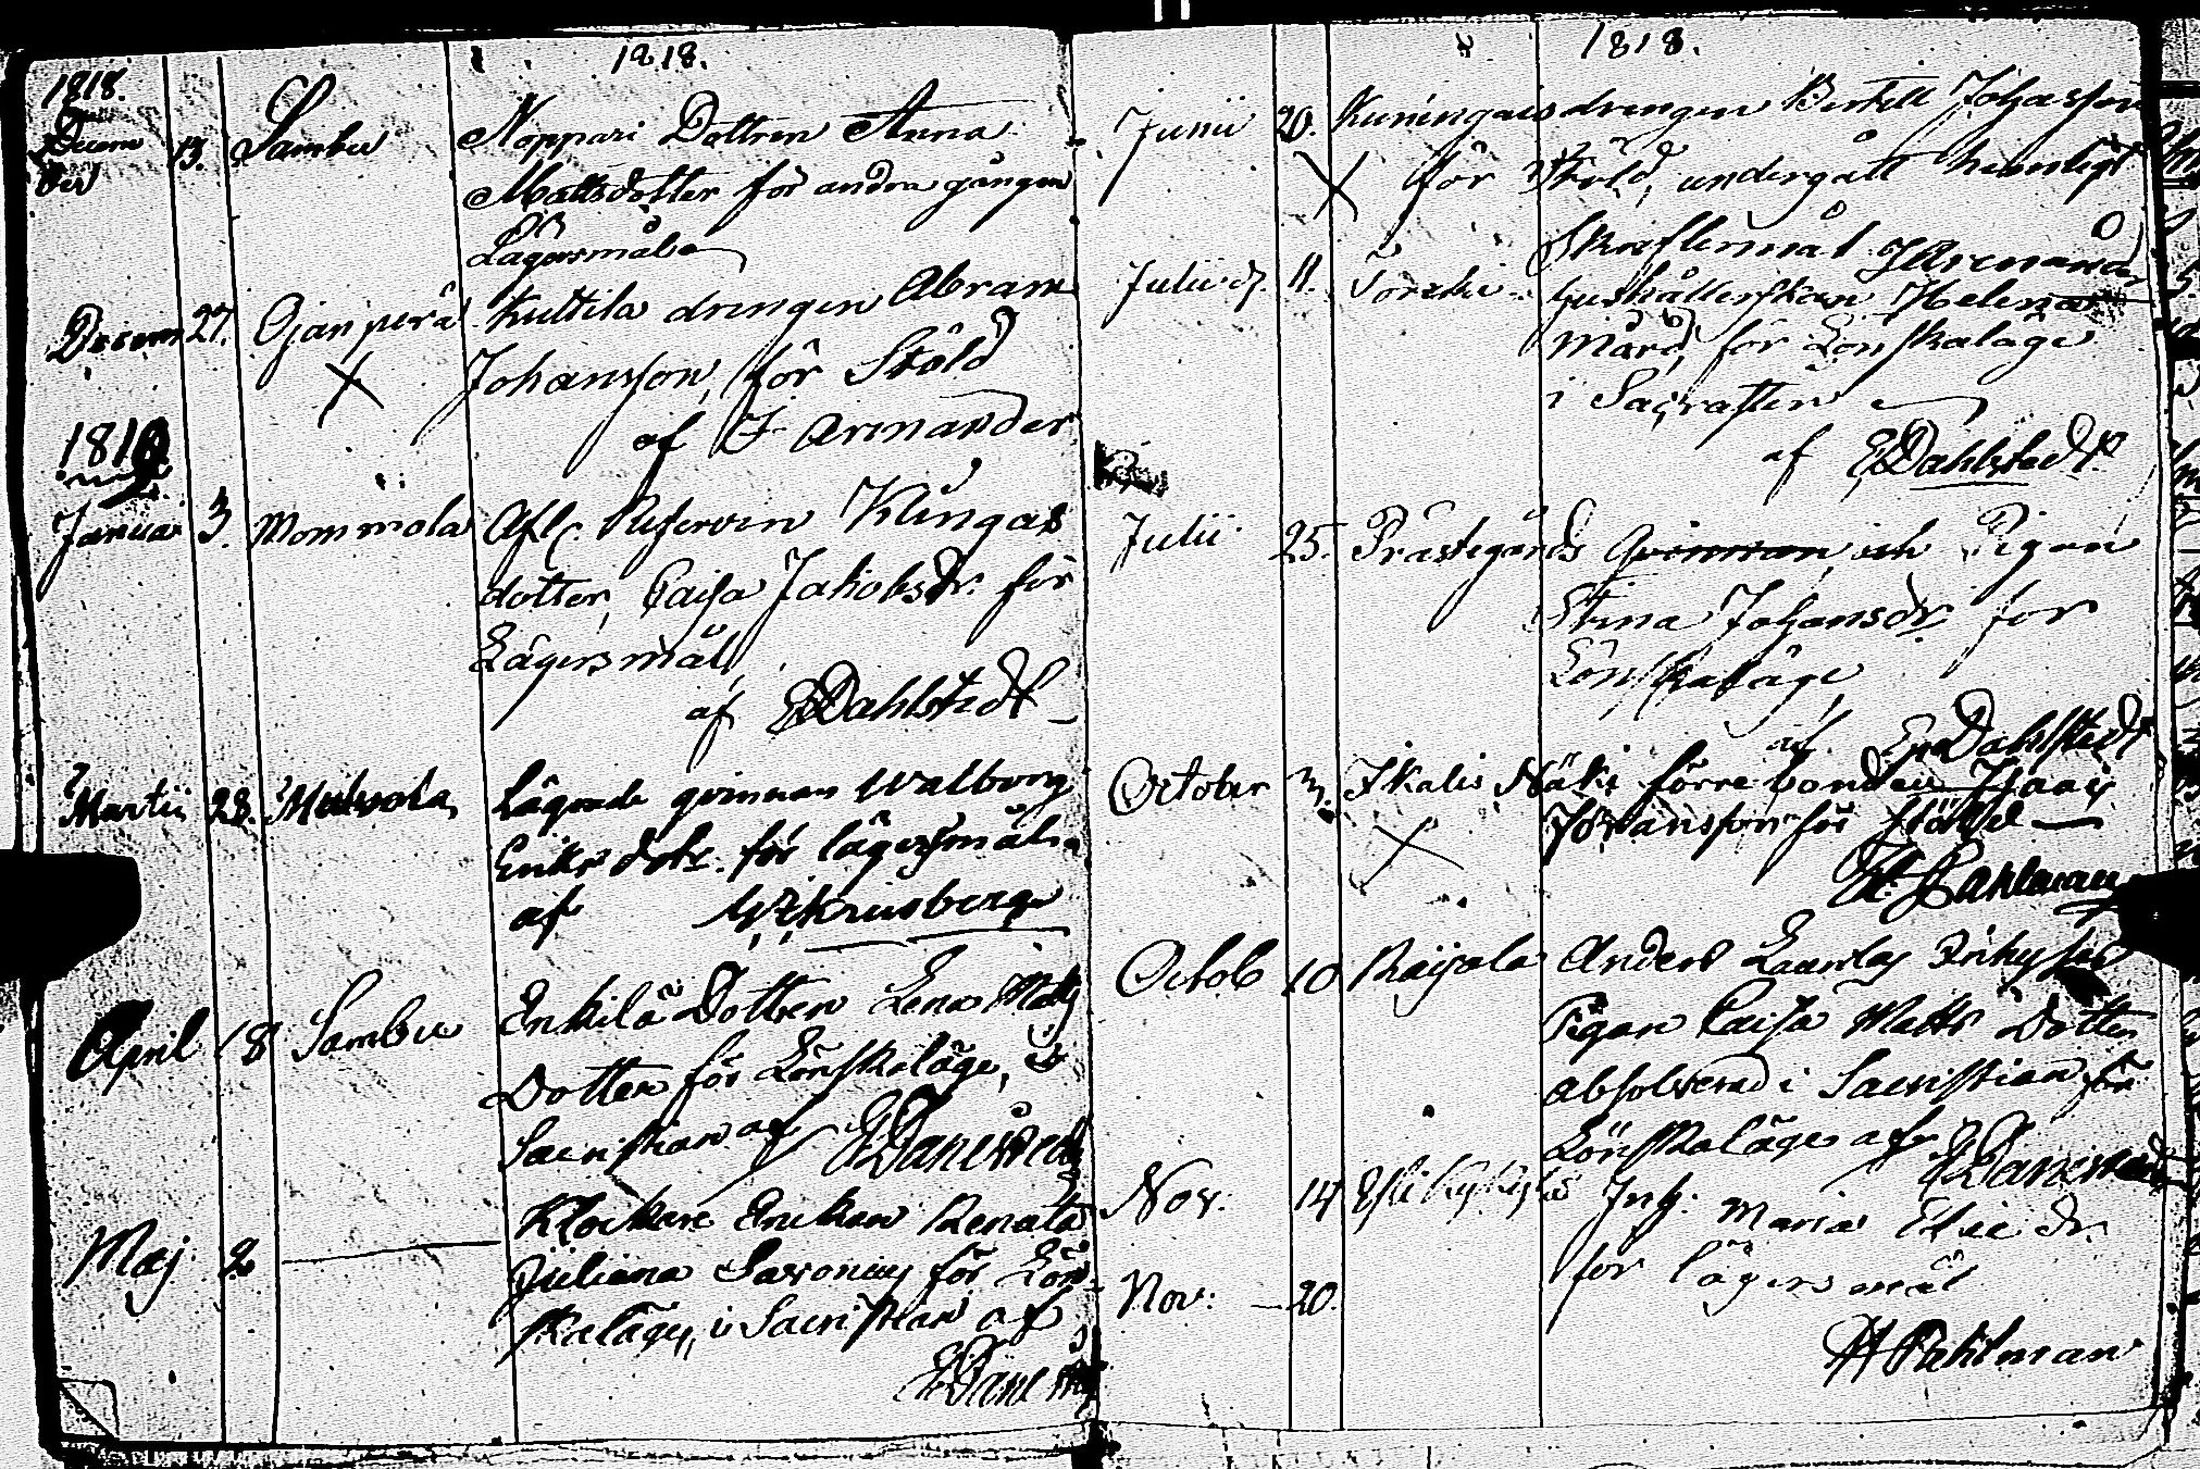 1818.
1818.
Decem
ber
13.
Sambu
Noppari Dottren Anna
Mattsdotter för andra gången
Lägersmåls
Decem 27.
Ojanperä
Kuttila drengen Abram
Johansson, för Stöld
af J Armander
Januar 3.
Mommola
Afl. Reserven Klingas
dotter, Caisa Jakobsdr. för
Lägersmål,
af EDahlstedt
Martii 28.
Lägrade qvinnan Walborg
Eriks dotr. för lägersmål.
af
April 18
Sambu
Enkilä Dotter Lena Matts
Dotter för Lönskaläge, i
Sacristian af
Maj 2
Klockare Enckan Renata
Juliana Saxonius för Lön
skaläge, i Sacristian af
1818.
Junii 20.
Kuningais drengen Bertill Johansson
för Stöld, undergått hemligt
Skriftermål J Armander
Julii d. 11.
Hushållerskan Helena
Mård, för Lönskaläge
i Sacratien
af EDahlstedt.
Julii 25.
Prästegårds Qvinnan och Pigan
Stina Johansdr for
Lönskaläge
af Er Dahlstedt
October 3.
Ikalis Mäki förre bonden Isaac
Johansson för stöld
H Pahlman
Octob 10
Räisälä
Anders
Pigan Caisa Matts Dotter
absolverad i Sacristian för
Lönskaläge af
Nov. 14
Inh. Maria Eric dr.
för lägersmål
Nov. 20.
H Pahlman